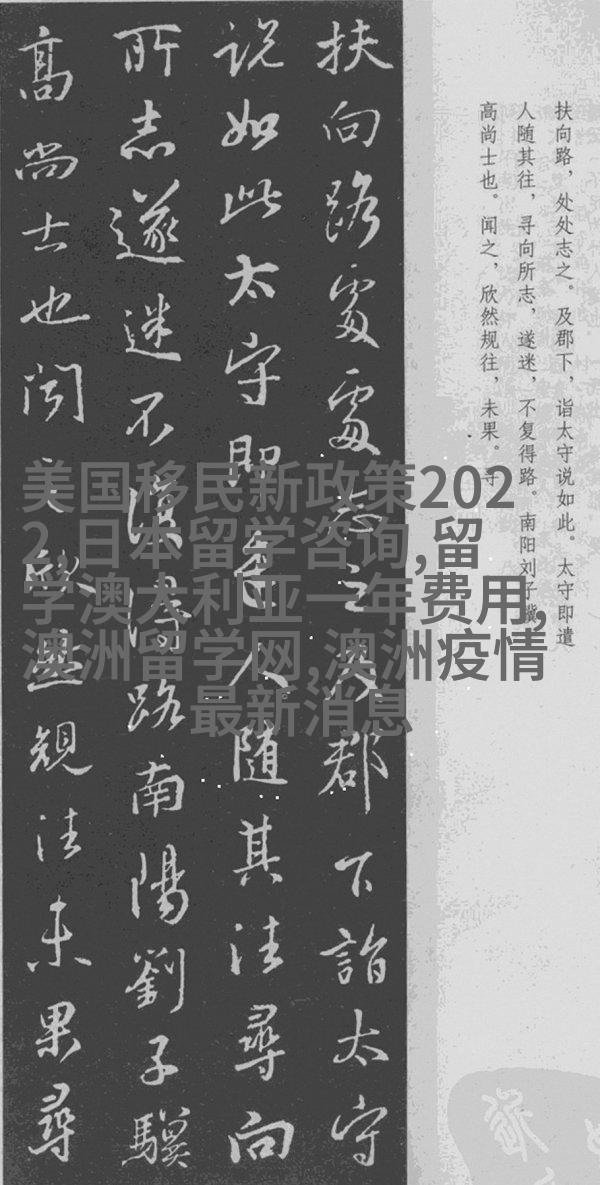 扶向路，处处志之。及郡下，诣太守说如此。太守即遣
人随其往，寻向所志，遂迷，不复得路。南阳刘子骥
高尚士也。闻之，欣然规往，未果。寻
扶向路處處志之及郡下詣太守
説如此太守即遣人随其往尋向
所志遂迷不復得路南陽劉子驥
髙尚士也聞之欣然規往未果尋
美国移民新政策202
2,日本留学咨询,留
学澳大利亚一年费用,
澳洲留学网,澳洲疫情
最新消息